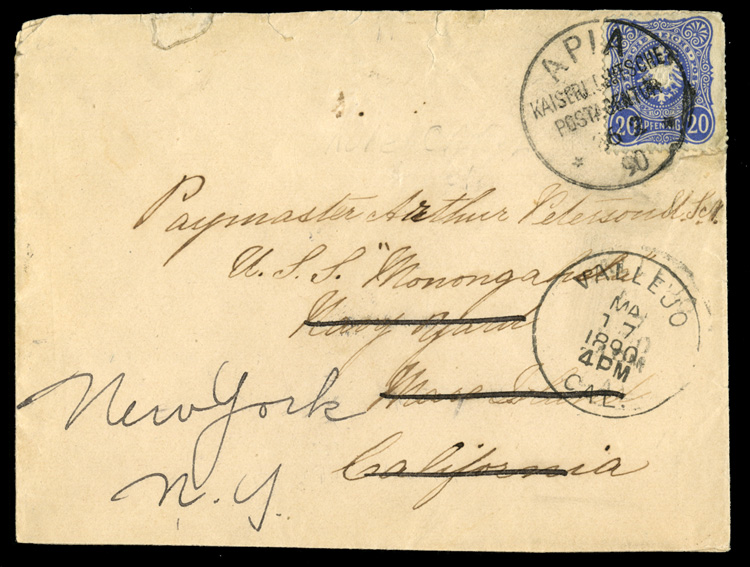 APIA
KAISERL. DEUTSCHE
POSTAGENTUR
90
20 PFENNIG 20
Paymaster Arthur Peterson U.S.N.
U.S.S. "Monongahela"
Navy Yard
Mare Island
California
New York
N.Y.
VALLEJO
MAY
17
1890
4PM
CAL.